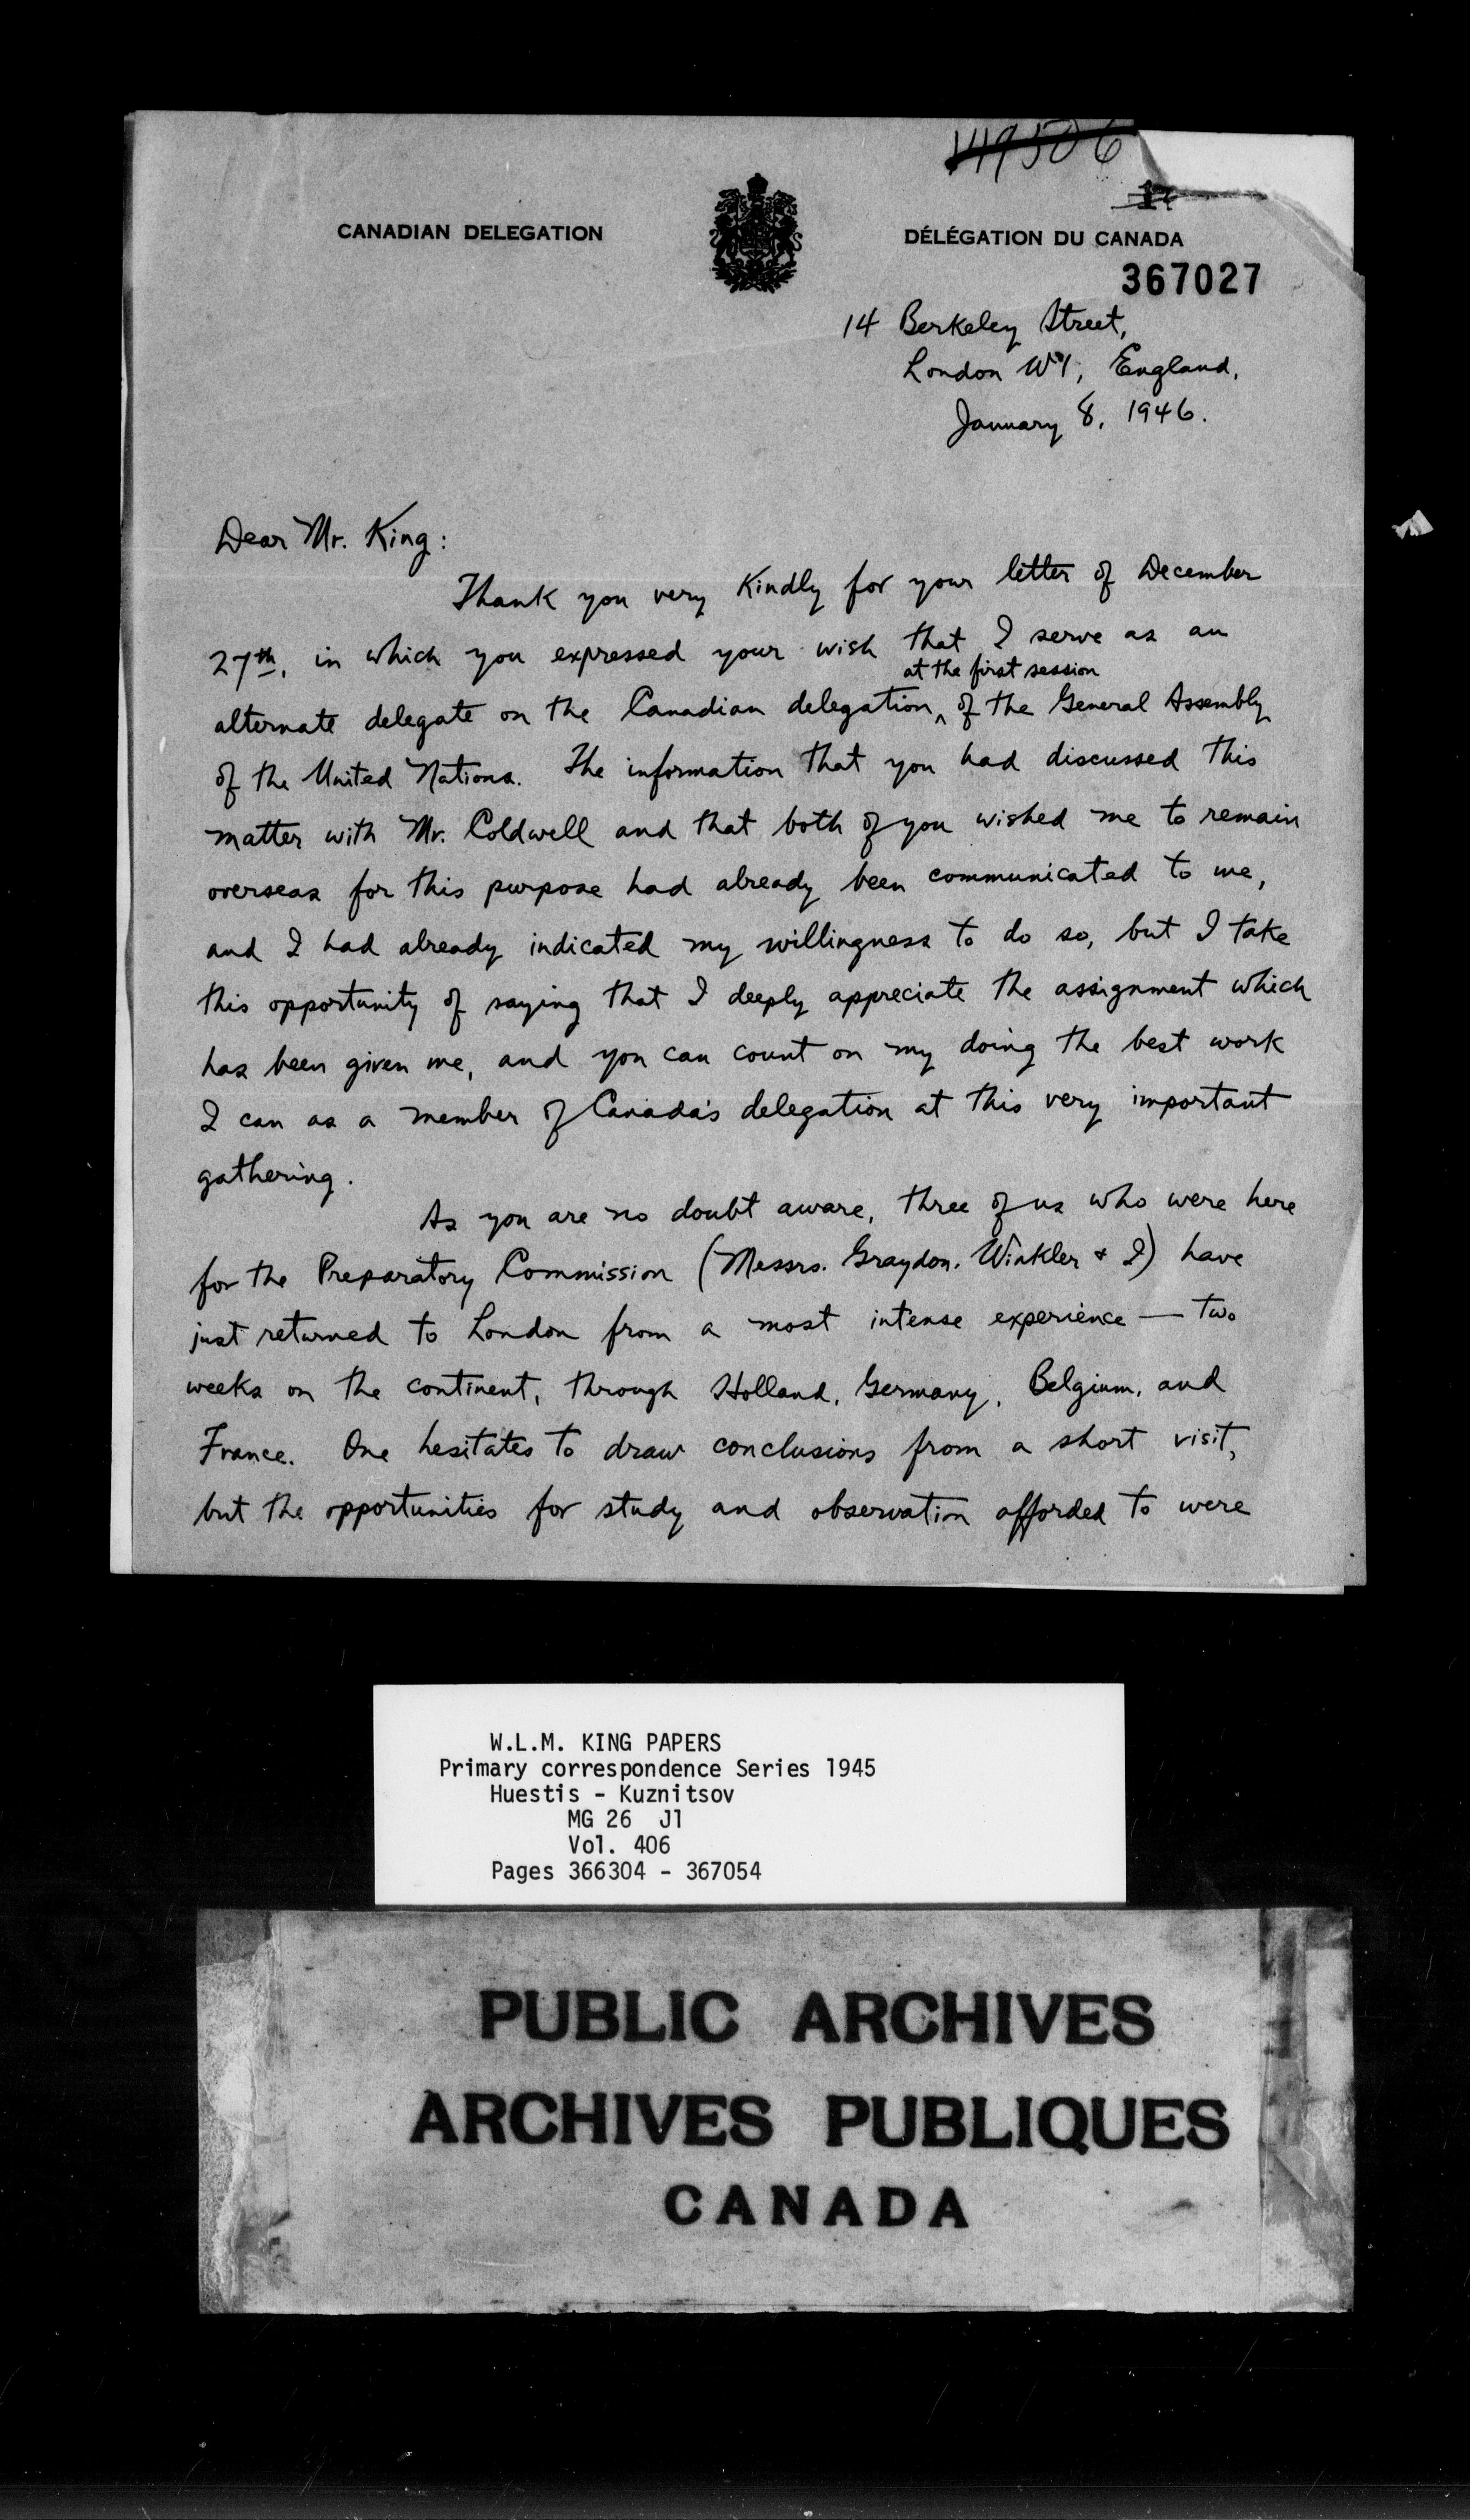 149506
CANADIAN DELEGATION
DÉLÉGATION DU CANADA
367027
14 Berkeley Street,
London W1, England,
January 8, 1946.
Dear Mr. King:
Thank you very kindly for your letter of December
27th, in which you expressed your wish that I serve as an
at the first session
alternate delegate on the Canadian delegation, ^ of the General Assembly
of the United Nations. The information that you had discussed this
matter with Mr. Coldwell and that both of you wished me to remain
overseas for this purpose had already been communicated to me,
and I had already indicated my willingness to do so, but I take
this opportunity of saying that I deeply appreciate the assignment which
has been given me, and you can count on my doing the best work
I can as a member of Canada's delegation at this very important
gathering.
As you are no doubt aware, three of us who were here
for the Preparatory Commission (Messrs. Graydon, Winkler & I) have
just returned to London from a most intense experience — two
weeks on the continent, through Holland, Germany, Belgium, and
France. One hesitates to draw conclusions from a short visit,
but the opportunities for study and observation afforded to were
W.L.M. KING PAPERS
Primary correspondence Series 1945
Huestis - Kuznitsov
MG 26 J1
Vol. 406
Pages 366304 - 367054
PUBLIC ARCHIVES
ARCHIVES PUBLIQUES
CANADA